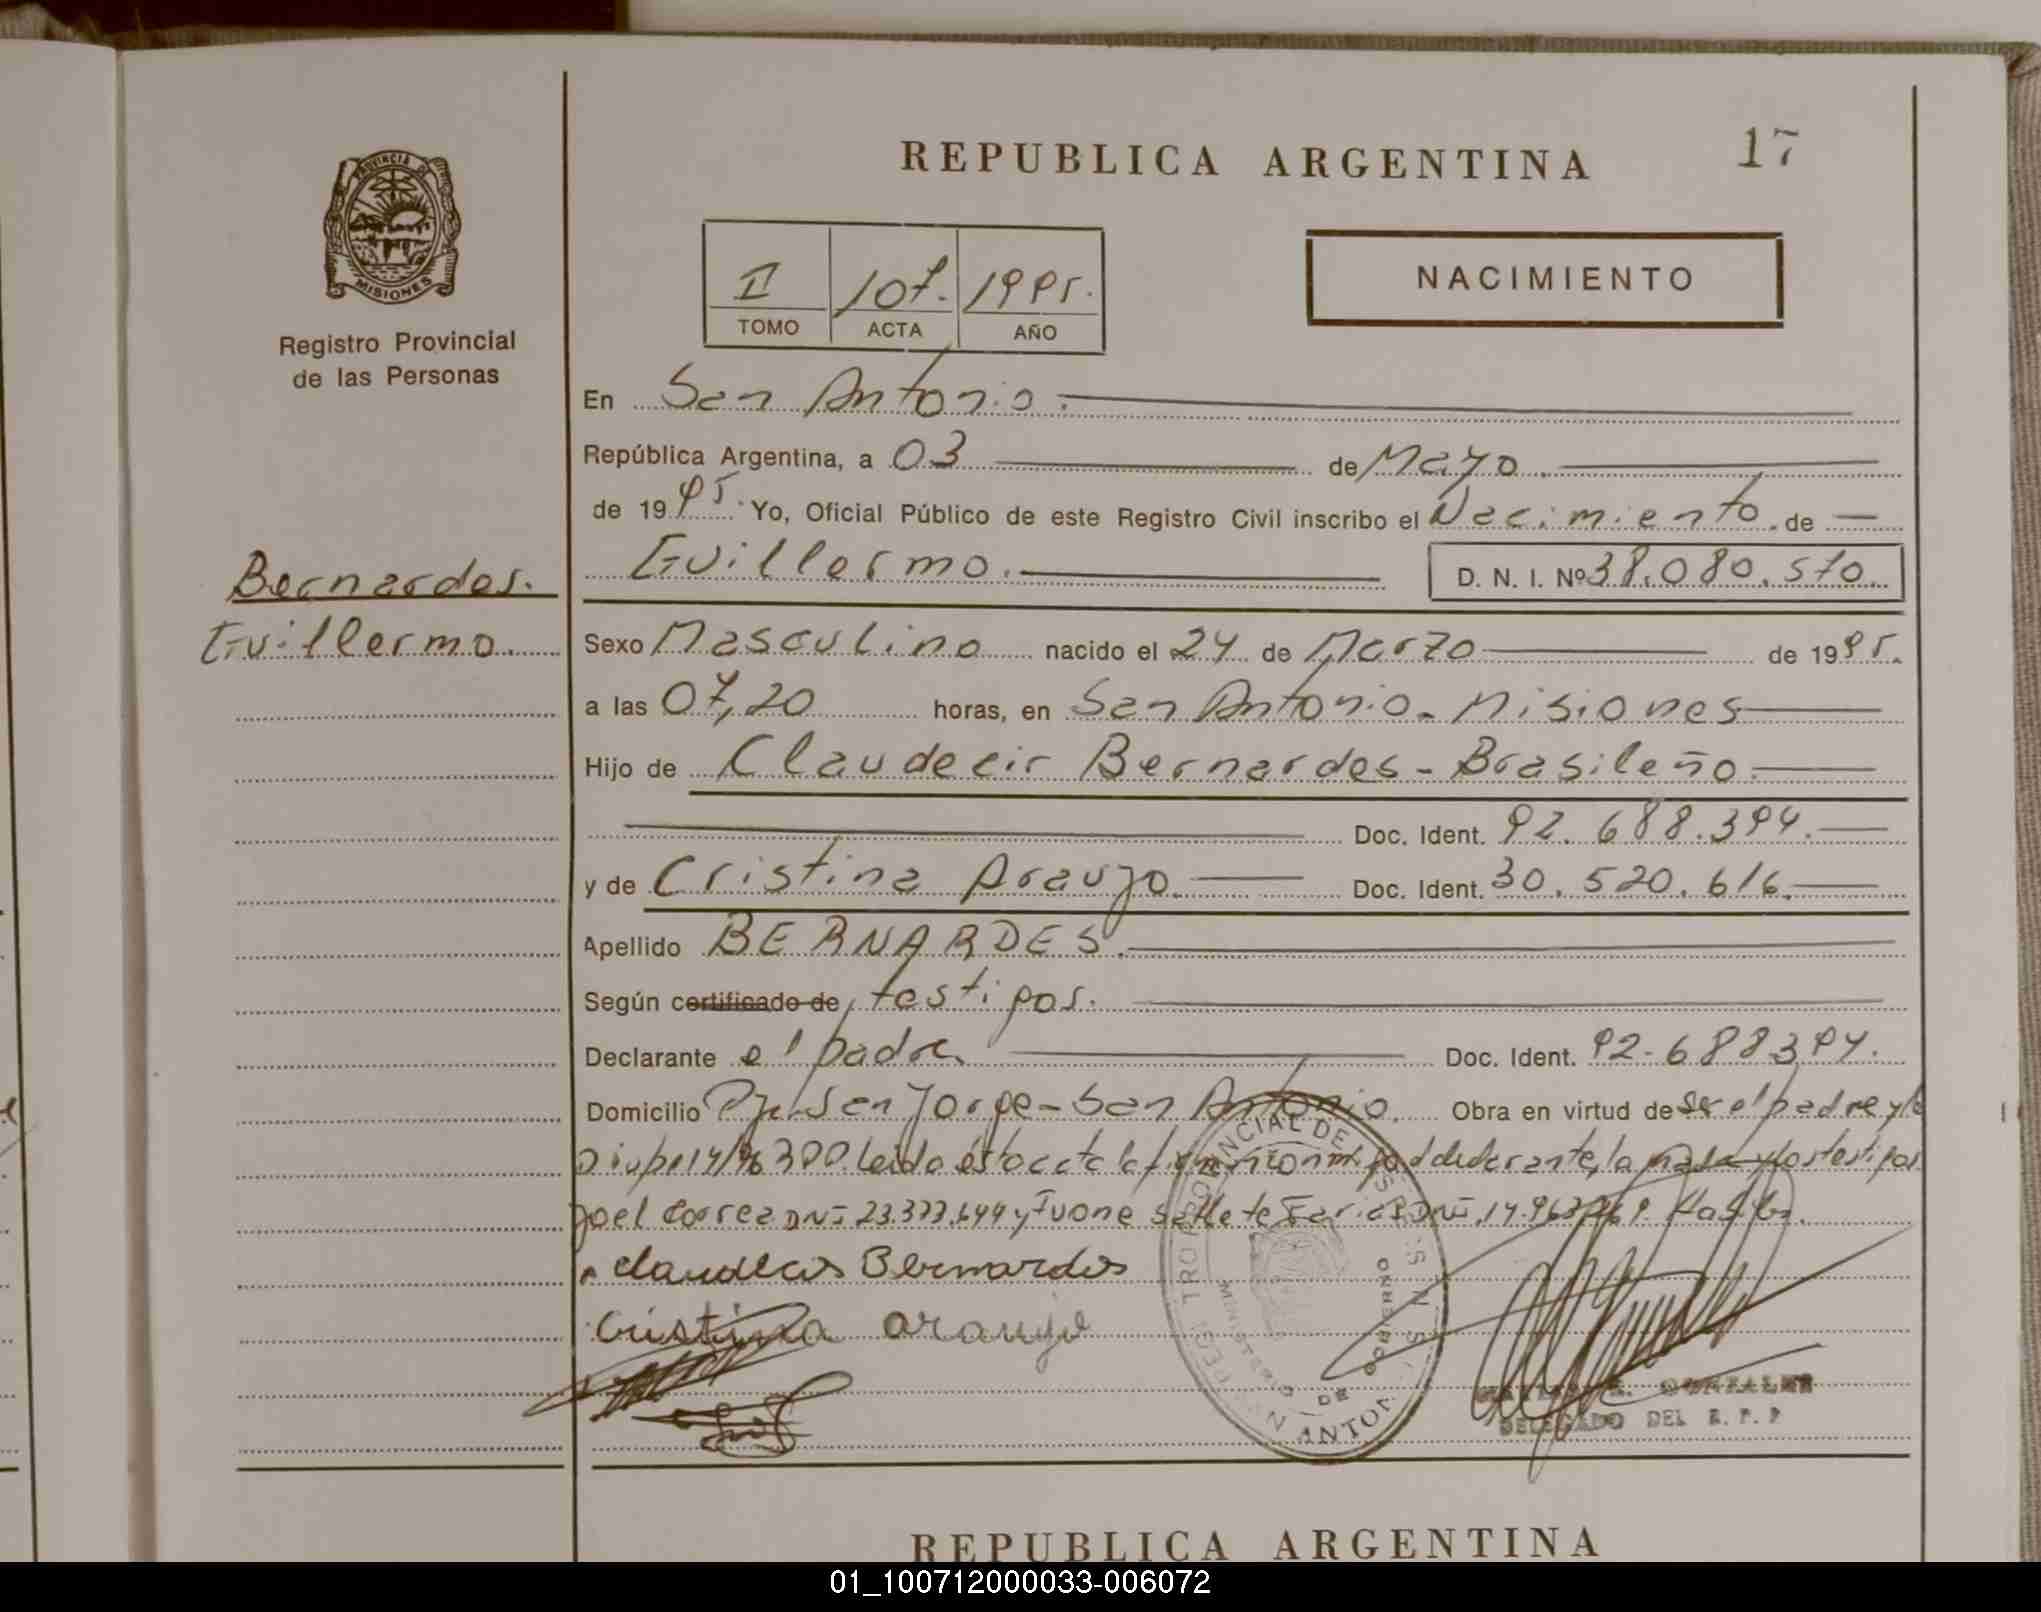 REPUBLICA ARGENTINA
17
PROVINCIA DE
MISIONES
Registro Provincial
de las Personas
II 107. 1995.
TOMO ACTA AÑO
NACIMIENTO
En San Antonio.
República Argentina, a 03 de Mayo.
de 1995. Yo, Oficial Público de este Registro Civil inscribo el Nacimiento. de
Guillermo. D. N. I. Nº 38.080.570.
Bernardes.
Guillermo.
Sexo Masculino nacido el 24 de Marzo de 1995.
a las 07,20 horas, en San Antonio. Misiones
Hijo de Claudecir Bernardes - Brasileño.
Doc. Ident. 92.688.394.
y de Cristina Araujo. Doc. Ident. 30.520.616.
Apellido BERNARDES.
Según certificado de, testigos.
Declarante el padre. Doc. Ident. 92-688394.
Domicilio Pje. San Jorge - San Antonio. Obra en virtud de ser el padre y la
Leida ésta acta la declarante, la y los testigos
Joel Correa DNI 23.373.644 y Ivone Farias DNI.
Claudecir Bernardes
Cristina Araujo
MINISTERIO DE GOBIERNO
SAN ANTONIO
GONZALEZ
DELEGADO DEL R. P. P
REPUBLICA ARGENTINA
01_100712000033-006072